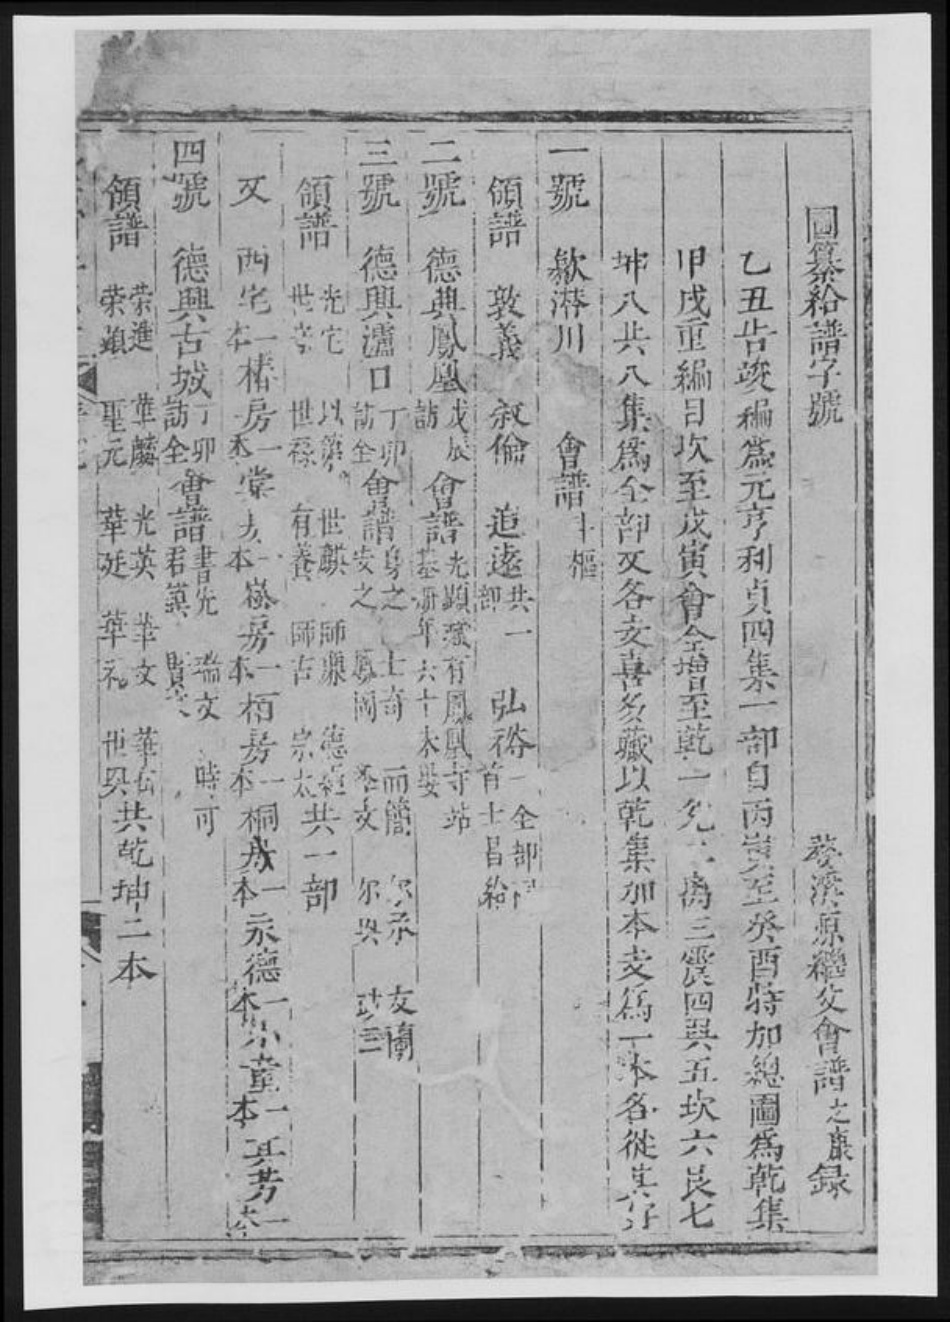 圖纂給譜字號
婺濟源繼父會譜之康録
乙丑告竣編為元亨利貞四集一部自丙寅至癸酉特加總圖爲乾集
甲戌重編目次至戊寅會全增至乾一兊二离三震四巽五坎六艮七
坤八共八集爲全部又各支喜多藏以乾集加本支爲一本各從其
一號 歙潛川 會譜 斗樞
領譜 敦義 叙倫 追遠 共一部 弘 一全部 首士昌給
二號 德興鳳凰 戊辰訪 會譜 光顯 有鳳凰寺 基 年六十
三號 德興瀘口 丁卯訪全 會譜 身之 安之 士奇 鳳岡 而簡 文 尔承 尔與 友蘭
領譜 光宅 世 以 世祿 世麒 有養 師 師古 德 宗太 共一部
又 西宅一本 椿房一本 棠 一本 崧房一本 栢房一本 桐房一本 永德一本 小童一本
四號 德興古城 丁卯訪全 會譜 書先 君 瑞文 時可
領譜 荣進 荣顯 華麟 聖元 光英 華廷 華文 華礼 華 世與 共乾坤二本